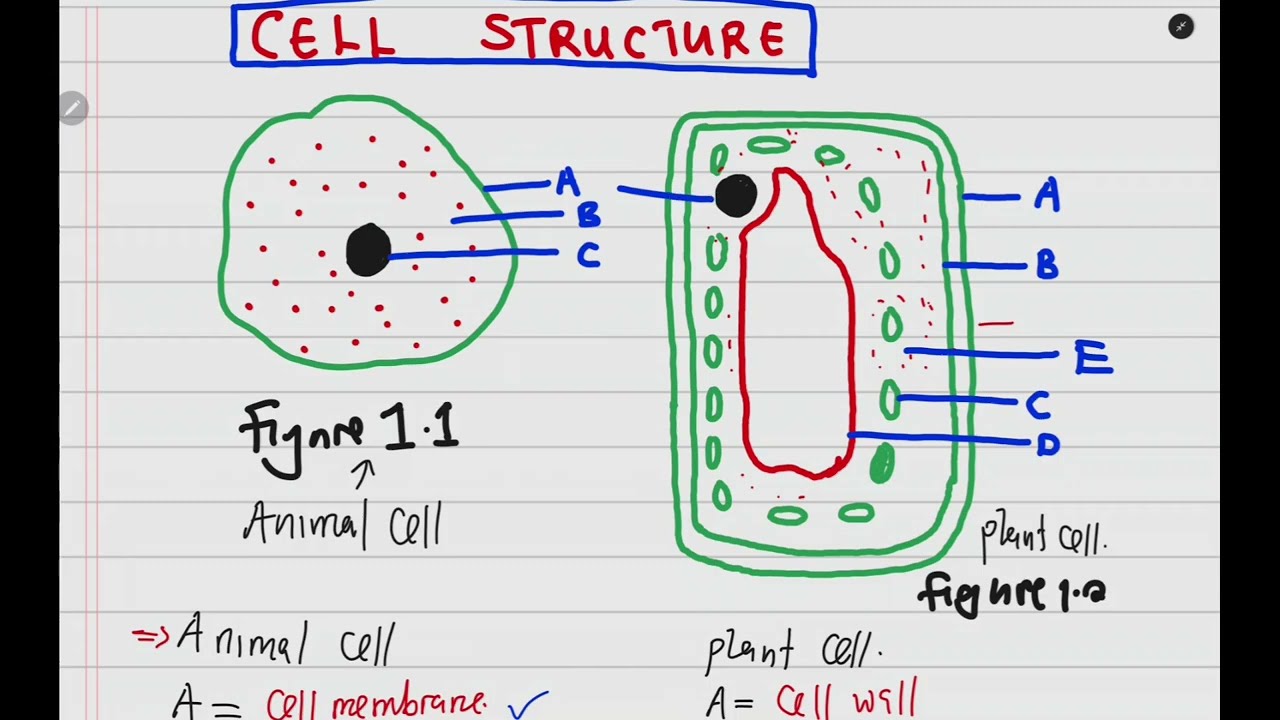 CELL STRUCTURE
A
B
C
A
B
E
C
D
Figure 1.1
Animal cell
plant cell.
figure 1.2
⇒ Animal cell
A = Cell membrane. ✓
plant cell.
A = Cell wall